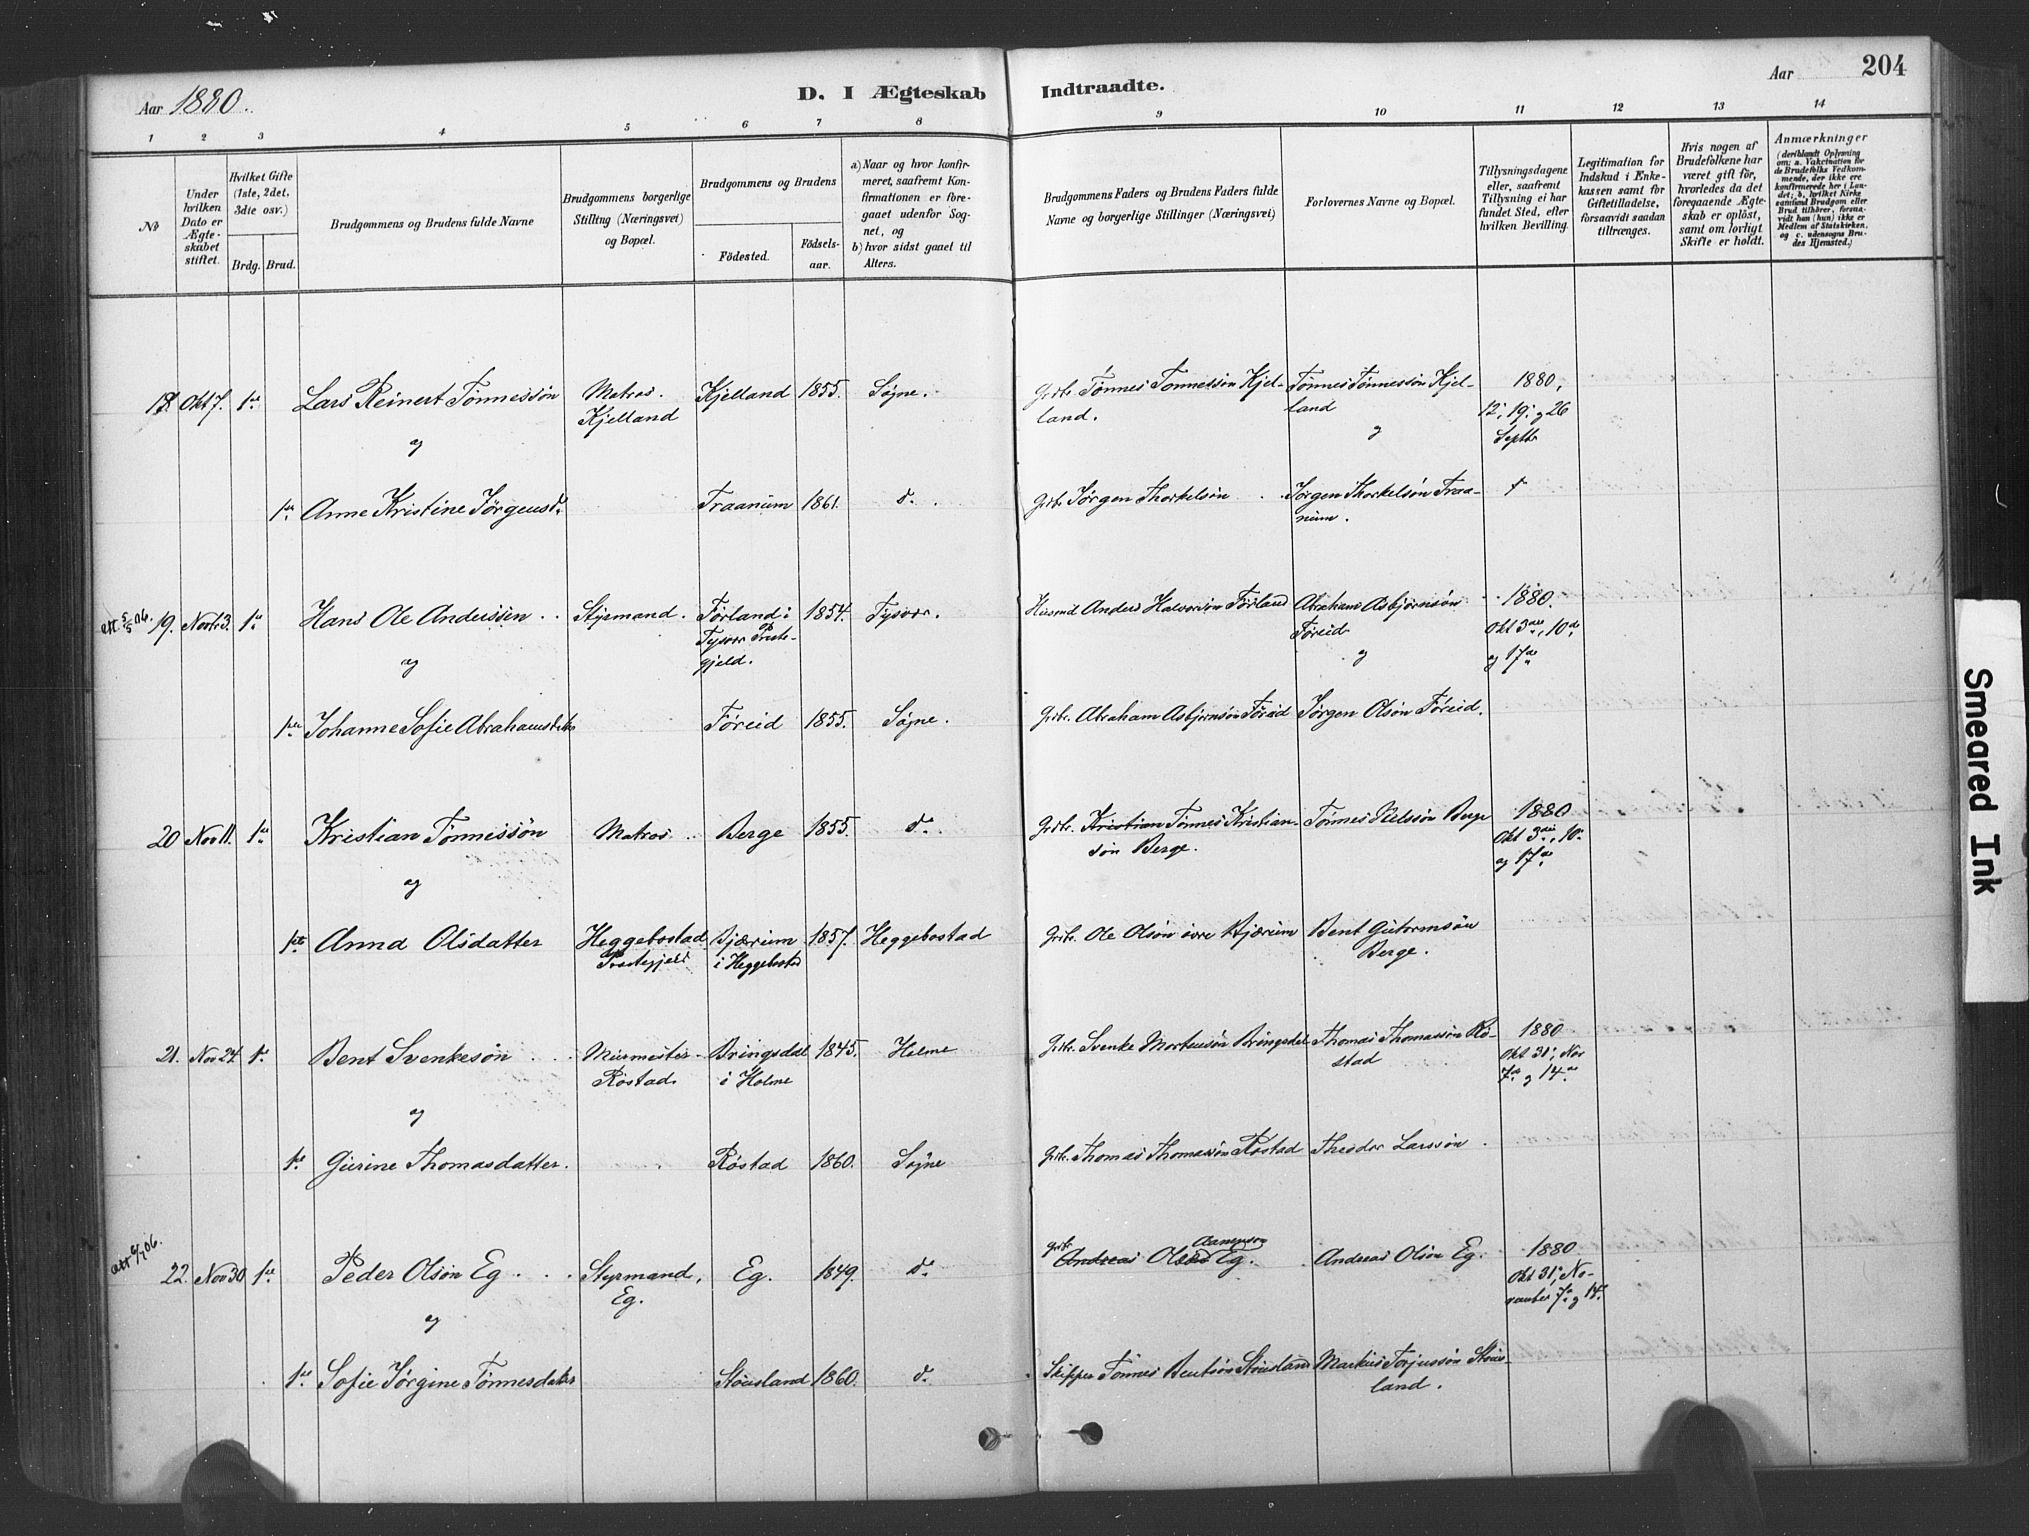 Aar 1880.
D. I Ægteskab
Indtraadte.
Aar
204
1 2 3 4 5 6 7 8 9 10 11 12 13 14
No
Under hvilken Dato er Ægteskabet stiftet.
Hvilket Gifte (1ste, 2det, 3die osv.)
Brdg. Brud.
Brudgommens og Brudens fulde Navne
Brudgommens borgerlige Stilling (Næringsvei) og Bopæl.
Brudgommens og Brudens
Födested.
Födselsaar.
a) Naar og hvor konfirmeret, saafremt Konfirmationen er foregaaet udenfor Sognet, og
b) hvor sidst gaaet til Alters.
Brudgommens Faders og Brudens Faders fulde Navne og borgerlige Stillinger (Næringsvei)
Forlovernes Navne og Bopæl.
Tillysningsdagene eller, saafremt Tillysning ei har fundet Sted, efter hvilken Bevilling.
Legitimation for Indskud i Ænkekassen samt for Giftetilladelse, forsaavidt saadan tiltrænges.
Hvis nogen af Brudefolkene har været gift för, hvorledes da det foregaaende Ægteskab er oplöst, samt om lovligt Skifte er holdt.
Anmærkninger
(deriblandt Oplysning om: a. Vakcination for de Brudefolks Vedkommende, der ikke ere konfirmerede her i Landet; b. hvilket Kirkesamfund Brudgom eller Brud tilhörer, forsaavidt han (hun) ikke er Medlem af Statskirken, og c. udensogns Brudes Hjemsted.)
18. Okt 7. 1ste Lars Reinert Tønnessøn Matros. Kjelland 1855. Søgne. Grdbr. Tønnes Tønnessøn Kjel- Tønnes Tønnessøn Kjel- 1880,
Kjelland land. land 12te, 19de og 26
og og Septbr
1ste Anne Kristine Jørgensdr. Traanum 1861. do. Grdbr. Jørgen Thorkelsøn Jørgen Thorkelsøn Traa-
num.
att. 5/5 06. 19. Novbr 3. 1ste Hans Ole Anderssen Styrmand. Førland i 1854. Tysvær. Husmd Anders Halvorsøn Førland Abraham Asbjørnsøn 1880.
Tysvær Præste- Føreid Okt 3die, 10de
og gjeld. og og 17de
1ste Johanne Sofie Abrahamsdatter Føreid 1855. Søgne. Grdbr. Abraham Asbjørnsøn Føreid Jørgen Olsøn Føreid.
20 Nov 11. 1ste Kristian Tønnessøn Matros Berge 1855. do. Grdbr. Kristian Tønnes Kristian- Tønnes Nilssøn Berge 1880
søn Berge. Okt 3die, 10de
og og 17de
1ste Anna Olsdatter Heggebostad Bjærum 1857. Heggebostad Grdbr. Ole Olsøn øvre Bjærum Bent Gutormsøn
Præstegjeld i Heggebostad Berge.
21. Nov 24. 1ste Bent Svenkesøn Murmester Bringsdal 1845. Holme Grdbr. Svenke Mortensøn Bringsdal Thomas Thomassøn Rø- 1880
Røstad i Holme stad Okt 31te, Nov
og 7de og 14de
1ste Gurine Thomasdatter. Røstad 1860. Søgne Grdbr. Thomas Thomassøn Røstad Theodor Larssøn
att 06. 22. Nov 30 1ste Peder Olsøn Eg Styrmand, Eg. 1849. do. Grdbr. Andreas Olsøn Aanensøn Eg. Andreas Olsøn Eg. 1880
Eg. Okt 31te, No-
og vember 7de og 14.
1ste Sofie Jørgine Tønnesdatter Stousland 1860. do. Skipper Tønnes Bentsøn Stousland Markus Torjussøn Stous-
land.
Smeared Ink